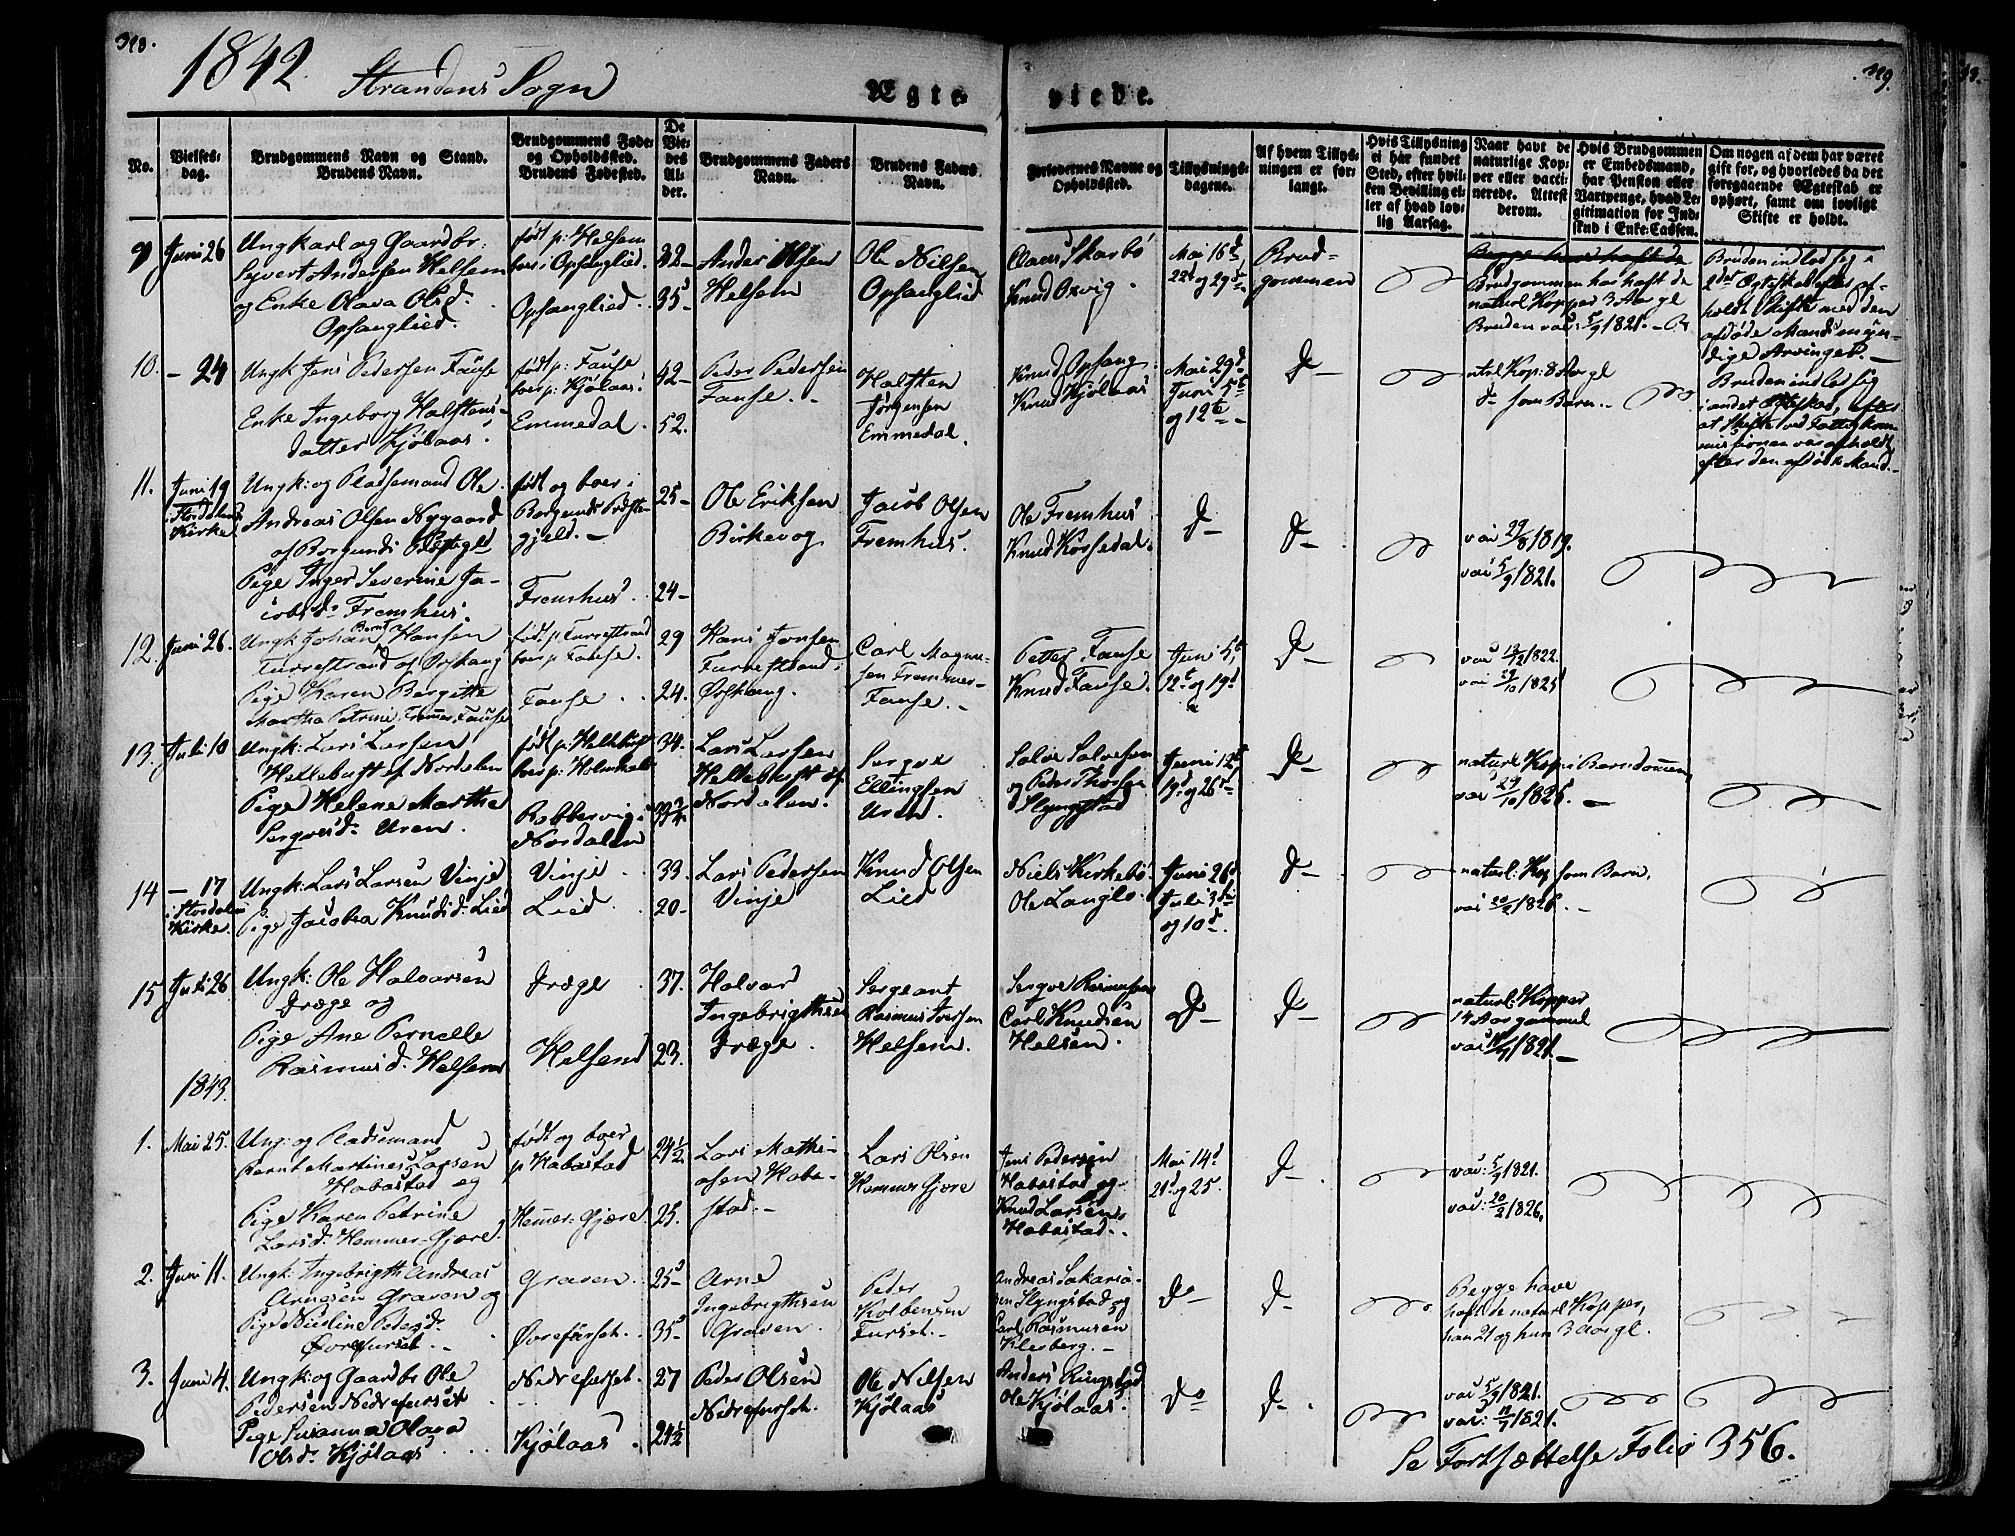 318.
319.
1842
Strandens Sogn
Ægte-
viede.
No.
Vielses-
dag.
Brudgommens Navn og Stand.
Brudens Navn.
Brudgommens Føde-
og Opholdssted.
Brudens Fødested.
De
Vie-
des
Al-
der.
Brudgommens Faders
Navn.
Brudens Faders
Navn.
Forlovernes Navne og
Opholdssted.
Tillysnings-
dagene.
Af hvem Tillys-
ningen er for-
langt.
Hvis Tillysning
ei här fundet
Sted, efter hvil-
ken Bevilling el-
ler af hvad lov-
lig Aarsag.
Naar havt de
naturlige Kop-
per eller vacci-
nerede. Attest
derom.
Hvis Brudgommen
er Embedsmand,
har Pension eller
Vartpenge, hvad Le-
gitimation for Ind-
skud i Enke-Cassen.
Om nogen af dem har været
gift før, og hvorledes da det
foregaaende Ægteskab er
ophørt, samt om lovligt
Skifte er holdt.
9
Juni 26
Ungkarl og Gaardbr:
Syvert Andersen Helsem
og Enke Olava Olsd.
Opsanglied.
født p: Helsem
boer i Opsanglied.
Opsanglied.
32-
35-
Anders Olsen
Helsem
Ole Nilsen
Opsanglied
Claus Skarbö
Knud Orvig.
Mai 16d
22d og 29d
Brud-
gommen
Brudgommen har haft de
naturl Kopper 3 Aar gl
Bruden vac: 5/9 1821.
Bruden indlod sig i
2det Ægteskab efter af-
holdt Skifte med den
afdøde Mands myn-
dige Arvinger.
10.
- 24
Ungk Jens Pedersen Fause
Enke Ingeborg Halstens-
datter Kjölaas.
født p: Fause
boer p: Kjölaas.
Emmedal.
42-
52.
Peder Pedersen
Fause.
Halsten
Jørgensen
Emmedal.
Knud Opsang
Knud Kjölaas
Mai 29d
Juni 5te
og 12te
D-
ntrl Kop: 8 Aar gl
d- som Barn.
Bruden indlod sig
i andet Ægteskab, efter
at Skifte ved Fattigkom-
missionen var afholdt
efter den afdøde Mand.
11.
Juni 19
i Stordalens
Kirke
Ungk: og Pladsemand Ole
Andreas Olsen Nygaard
af Borgunds Præstegl
Pige Inger Severine Ja-
cobsd. Fremhus.
født og boer i
Borgunds Præste-
gjeld.
Fremhus.
25-
24-
Ole Eriksen
Birkevog
Jacob Olsen
Fremhus.
Ole Fremhus
Knud Korsedal.
D-
D-
vac 29/8 1819.
vac 5/9 1821.
12.
Juni 26.
Ungk Johan Bernt Hansen
Furrestrand af Ørskoug
Pige Karen Bergitte
Martha Petrine Fremmer Fause
født p: Furrestrand
boer p: Fause.
Fause
29
24.
Hans Jonsen
Furrestrand
Ørskoug.
Carl Magnu-
sen Fremmer-
Fause.
Petter Fause
Knud Fause.
Juni 5te
12te og 19d
D-
vac 13/12 1822.
vac 29/10 1825
13.
Juli 10
Ungk: Lars Larsen
Hellebust af Nordalen
Pige Helene Marthe
Sergvesd. Uren.
født p: Hellebust
boer p: Holmkald
Robbervig i
Nordalen
34.
33 3/4
Lars Larsen
Hellebust af
Nordalen.
Sergve
Ellingsen
Uren.
Salve Salvesen
og Peder Thorsen
Slyngstad
Juni 12te
19d og 26d
D-
naturl. Kop. i Barndommen
vac 29/10 1825.
14
- 17
i Stordalens
Kirke.
Ungk: Lars Larsen Vinje
Pige Jacoba Knudsd: Lied
Vinje
Lied
33.
20-
Lars Pedersen
Vinje
Knud Olsen
Lied
Niels Kirkebö
Ole Langlo.
Juni 26d
Juli 3die
og 10d.
D-
naturl: Kop som Barn,
vac 20/2 1826.
15
Juli 26
Ungk: Ole Halvarsen
Dræge og
Pige Ane Pernelle
Rasmusd. Helsem
Dræge
Helsem
37.
23.
Halvar
Ingebrigtsen
Dræge.
Sergeant
Rasmus Iversen
Helsem.
Sergve Rasmussen
Carl Knudsen
Helsem.
D-
D-
naturl: Kopper
14 Aar gammel
vac 18/7 1821.
1843.
1.
Mai 25.
Ung: og Pladsemand
Bernt Martinus Larsen
Habostad og
Pige Karen Petrine
Larsd. Hammer-Gjære.
født og boer
p Habostad
Hemmer-Gjære.
24½
25.
Lars Mathi-
asen Habo-
stad.
Lars Olsen
Hammer Gjære
Jens Pedersen
Habostad og
Knud Larsen
Habostad.
Mai 14d
21d og 25.
D-
vac: 5/9 1821.
vac: 20/2 1826.
2.
Juni 11.
Ungk: Ingebrigth Andreas
Arnesen Graven og
Pige Nicoline Pedersd.
Øvrefurset.
Graven.
Øvrefurset.
25-
35-
Arne
Ingebrigthsen
Graven.
Peder
Kolbensen
Furset.
Andreas Sakaria-
sen Slyngstad og
Carl Rasmusen
Klesberg.
Do
D-
Begge have
haft de naturl Kopper,
han 21 og hun 3 Aar gl.
3.
Juni 4.
Ungk: og Gaardbr Ole
Pedersen Nedrefurset
Pige Susanna Olava
Olsd. Kjölaas
Nedrefurset.
Kjölaas
27
24½
Peder Olsen
Nedrefurset.
Ole Nilsen
Kjölaas
Anders Ringstad
Ole Kjölaas.
Do
D-
vac 5/9 1821.
vac: 18/7 1821.
Se Fortsættelse Folio 356.